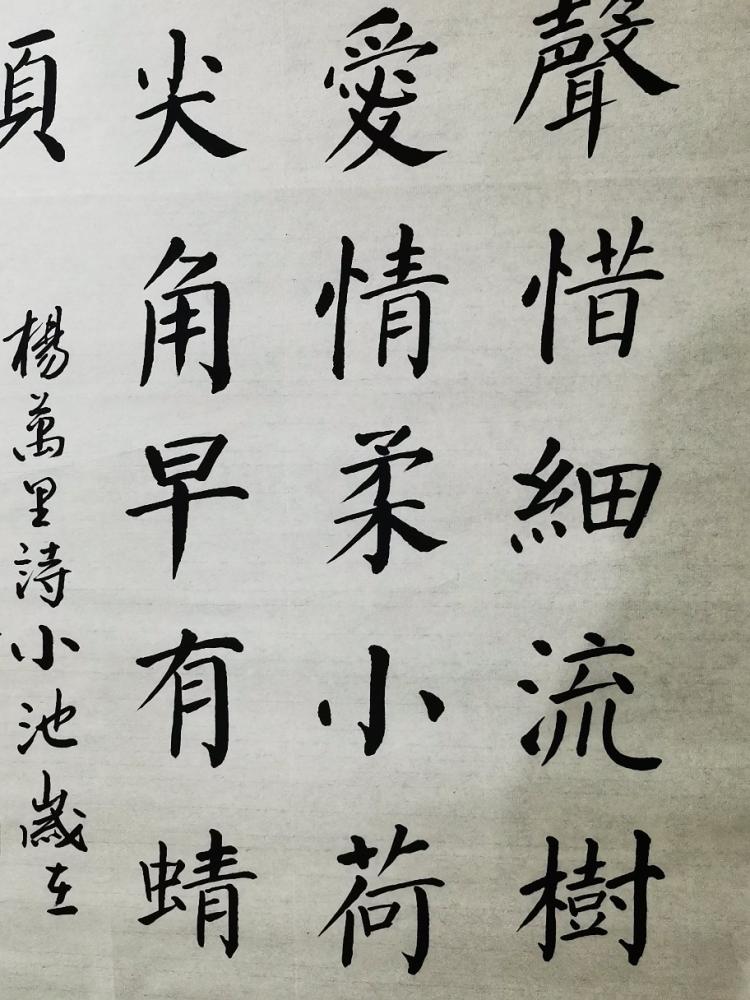 聲惜細流樹
愛情柔小荷
尖角早有蜻
楊萬里詩小池歲在